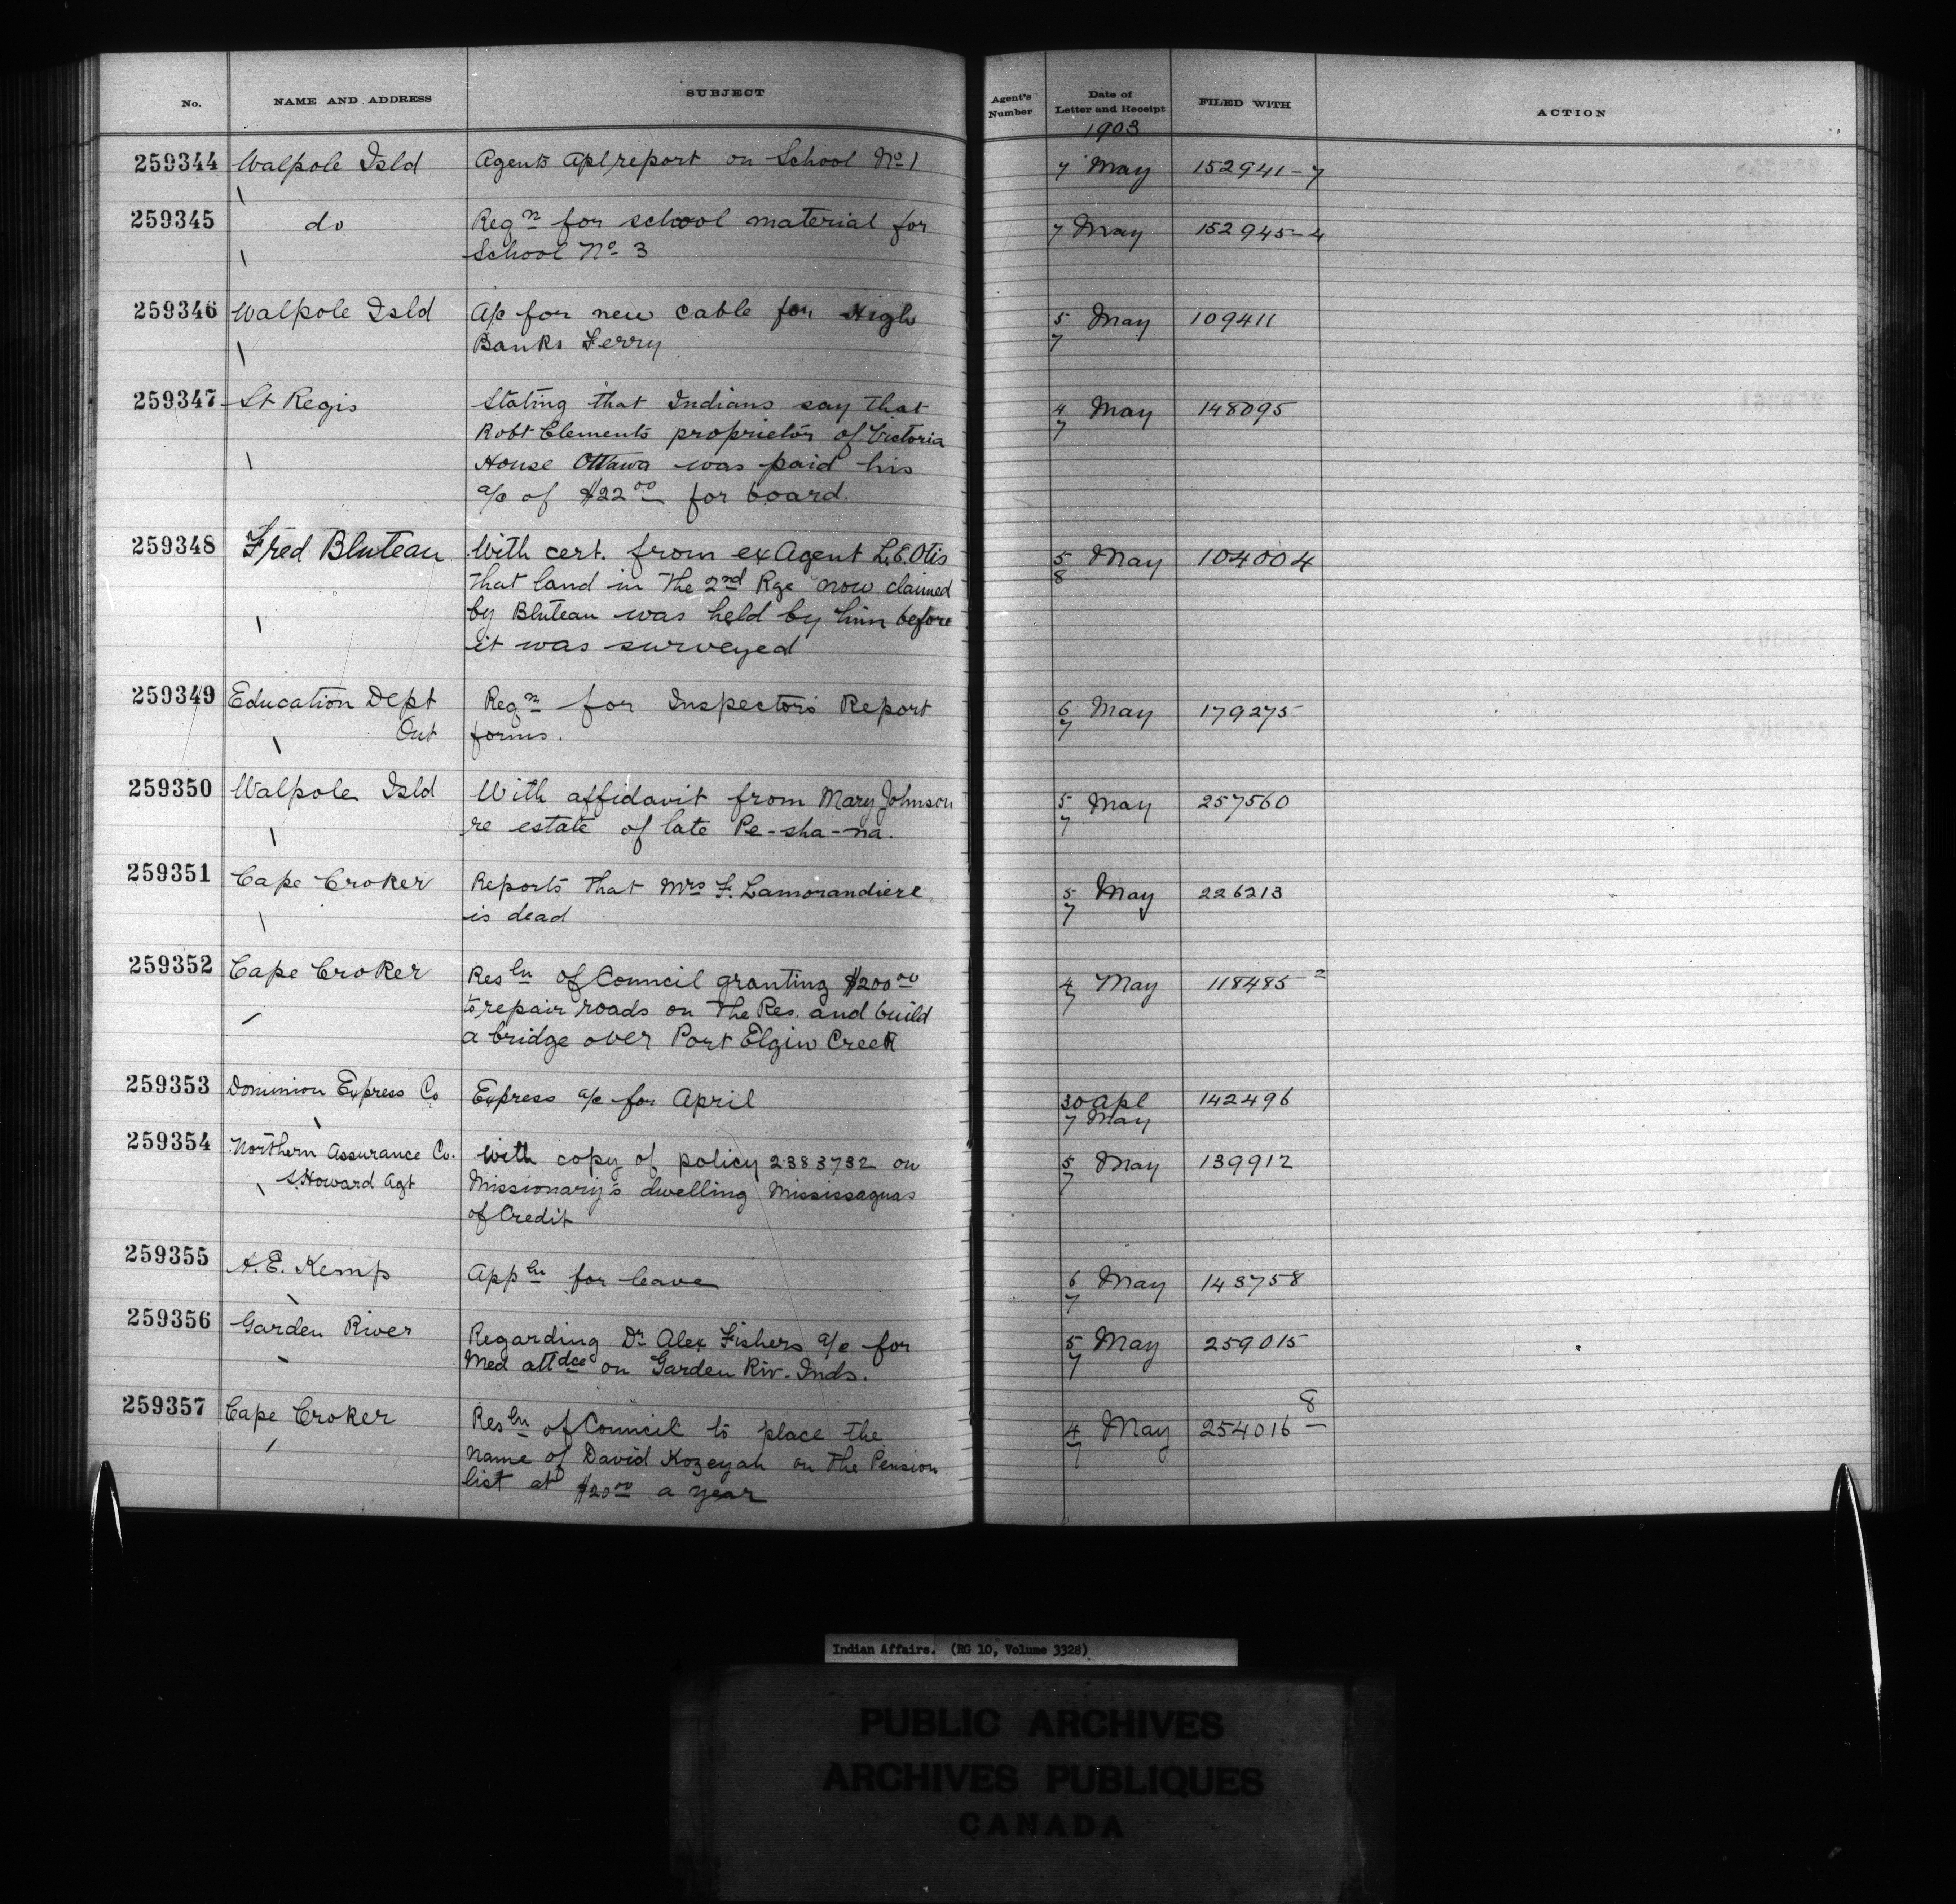 No. NAME AND ADDRESS SUBJECT Agent's Number Date of Letter and Receipt FILED WITH ACTION
1903
259344 Walpole Isld Agents Apl report on School No 1 7 May 152941-7
259345 do Reqn for school material for 7 May 152945-4
School No 3
259346 Walpole Isld A/c for new cable for High 5 May 109411
Banks Ferry 7
259347 St Regis Stating that Indians say that 4 May 148095
Robt Clements proprietor of Victoria 7
House Ottawa was paid his
a/c of $22 00 for board.
259348 Fred Bluteau With cert. from ex Agent L.E. Otis 5 May 104004
that land in the 2nd Rge now claimed 8
by Bluteau was held by him before
it was surveyed
259349 Education Dept Reqn for Inspectors Report 6 May 179275
Ont forms. 7
259350 Walpole Isld With affidavit from Mary Johnson 5 May 257560
re estate of late Pe-sha-na. 7
259351 Cape Croker Reports that Mrs F. Lamorandiere 5 May 226213
is dead 7
259352 Cape Croker Resln of Council granting $200 00 4 May 118485-2
to repair roads on the Res. and build 7
a bridge over Port Elgin Creek
259353 Dominion Express Co Express a/c for April 30 Apl 142496
7 May
259354 Northern Assurance Co. With copy of policy 2383732 on 5 May 139912
S. Howard Agt Missionary's dwelling Mississaguas 7
of Credit
259355 A.E. Kemp Appln for leave 6 May 143758
7
259356 Garden River Regarding Dr Alex Fishers a/c for 5 May 259015
Med attdce on Garden Riv. Inds. 7
259357 Cape Croker Resln of Council to place the 4 May 254016 8
Name of David Kozeyah on the Pension 7
list at $20 00 a year
Indian Affairs. (RG 10, Volume 3328)
PUBLIC ARCHIVES
ARCHIVES PUBLIQUES
CANADA